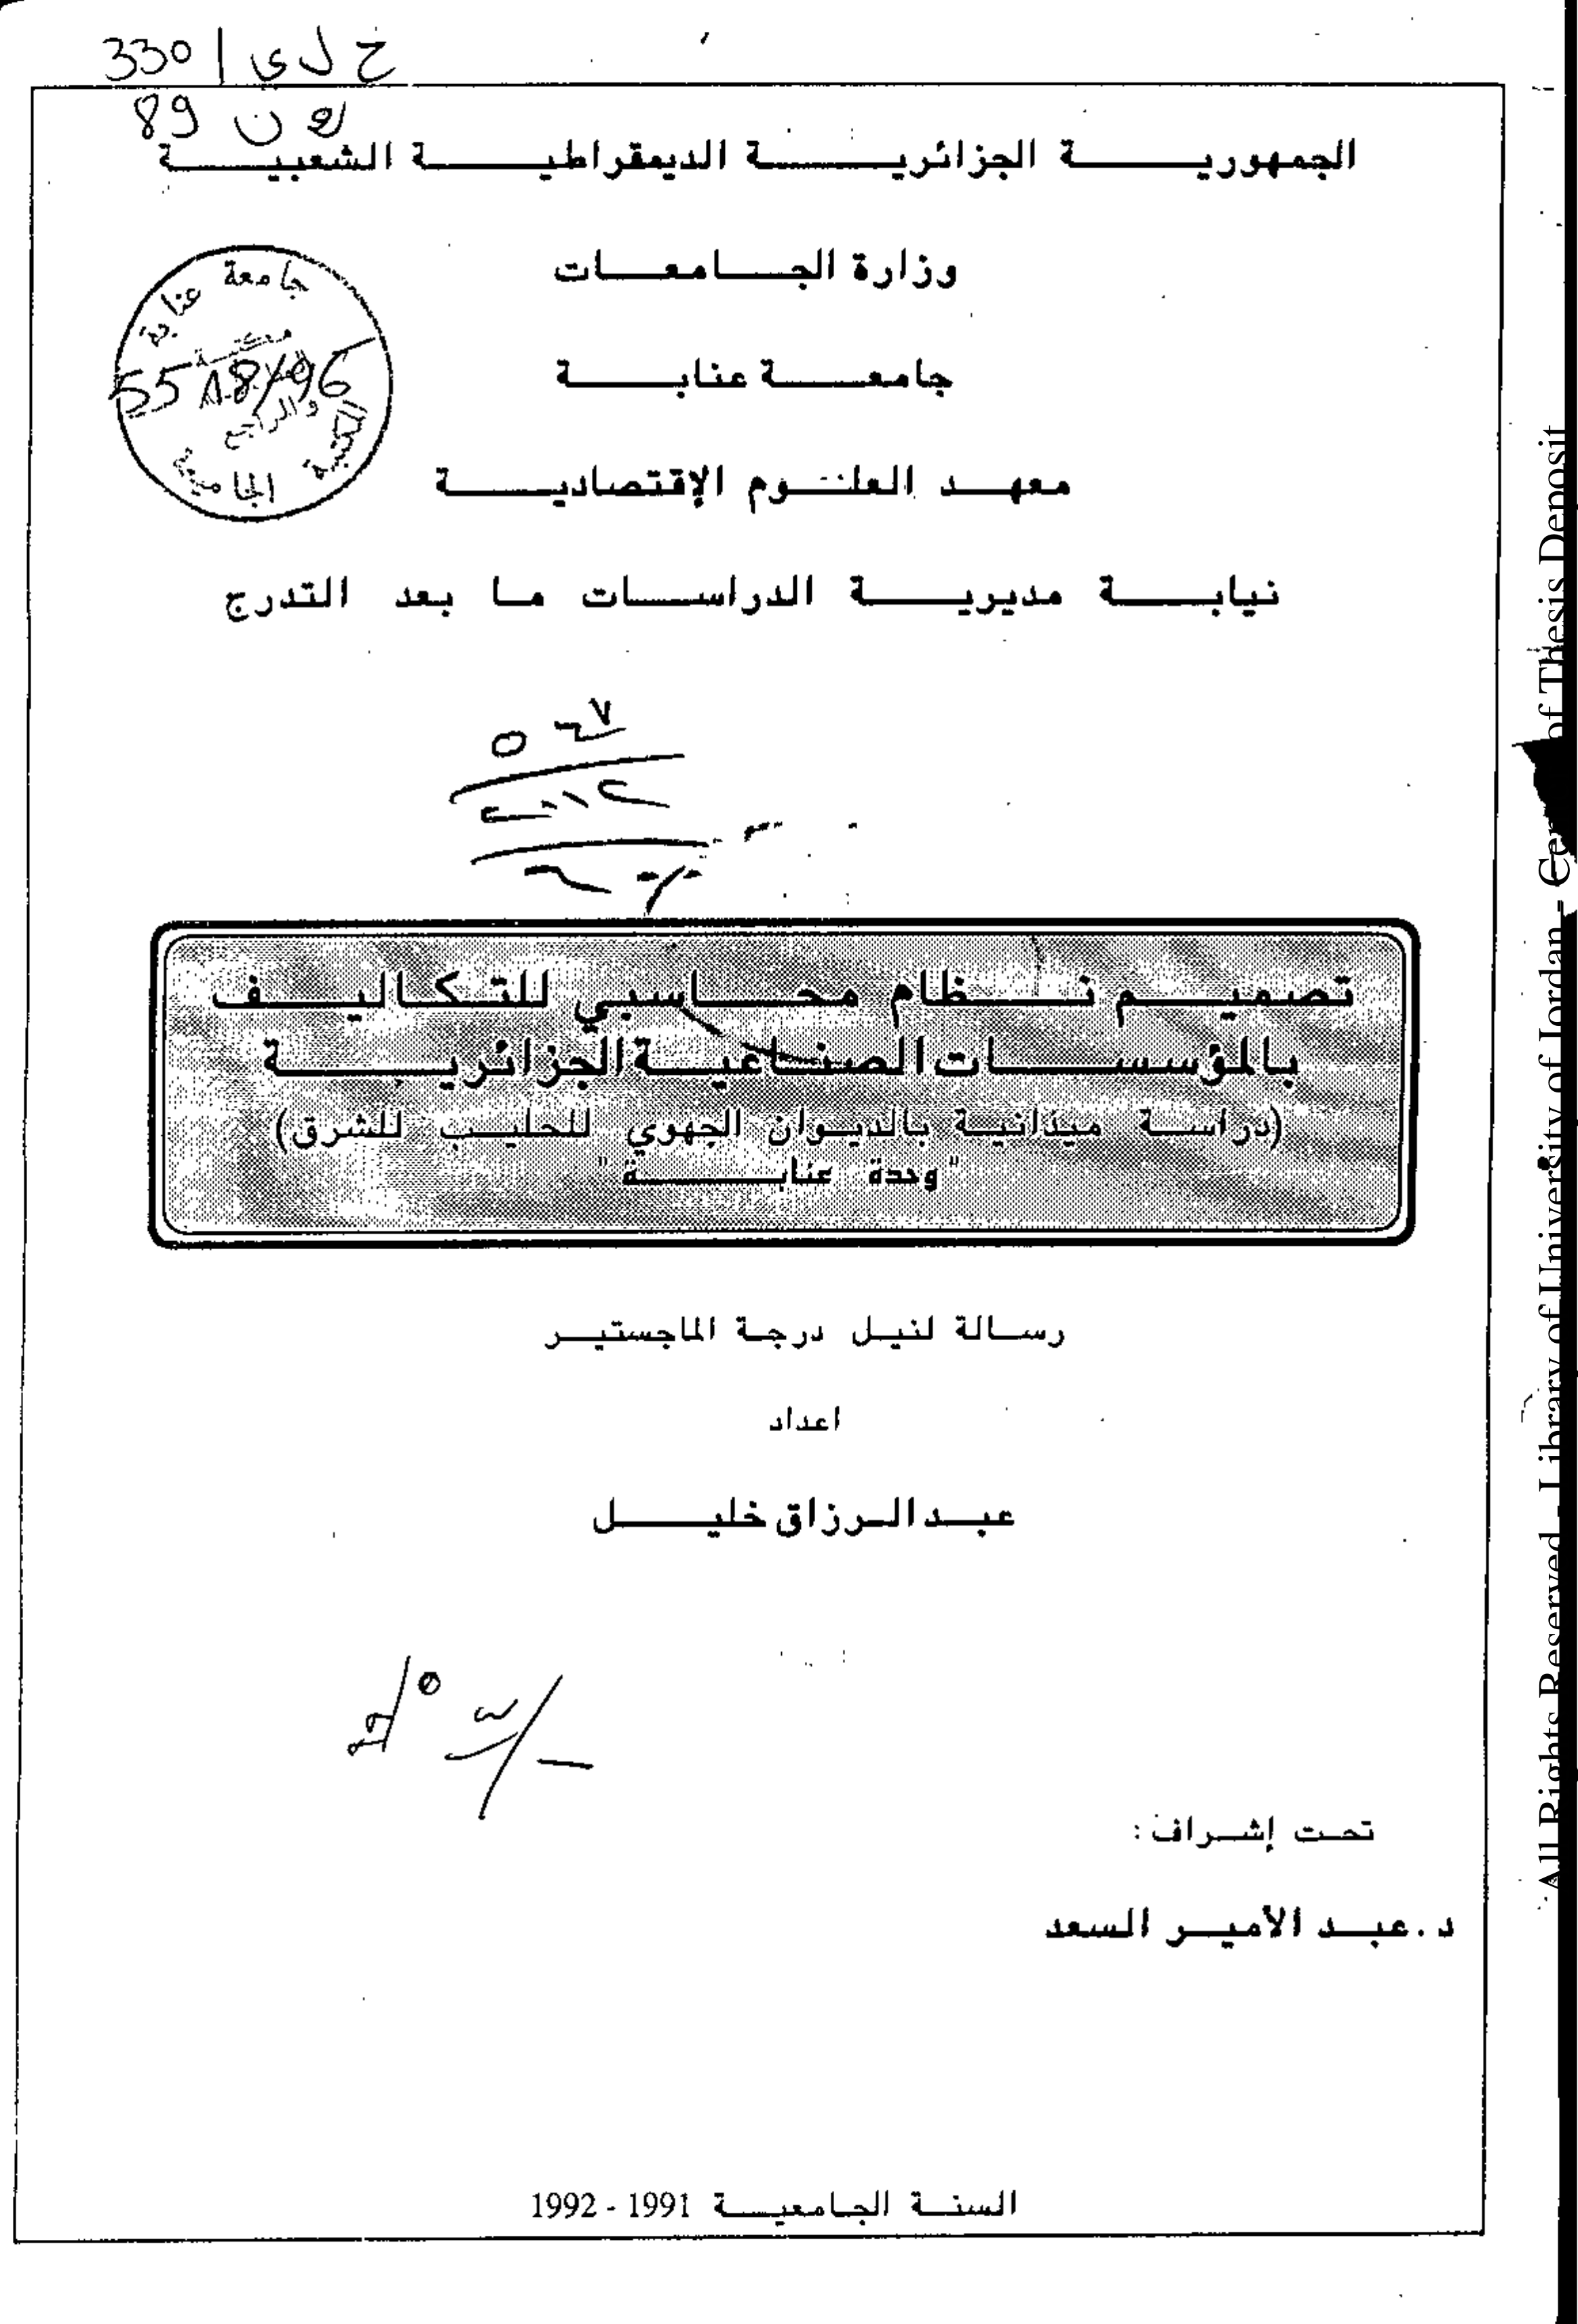 330 / ح ل ي
89
الجمهورية الجزائرية الديمقراطية الشعبية
وزارة الجامعات
جامعة عنابة
جامعة عنابة
مكتبة
والمراجع
المكتبة الجامعية
معهد العلوم الإقتصادية
نيابة مديرية الدراسات ما بعد التدرج
تصميم نظام محاسبي للتكاليف
بالمؤسسات الصناعية الجزائرية
(دراسة ميدانية بالديوان الجهوي للحليب للشرق)
"وحدة عنابة"
رسالة لنيل درجة الماجستير
اعداد
عبد الرزاق خليل
تحت إشراف :
د. عبد الأمير السعد
السنة الجامعية 1991 - 1992
All Rights Reserved - Library of University of Jordan - Center of Thesis Deposit